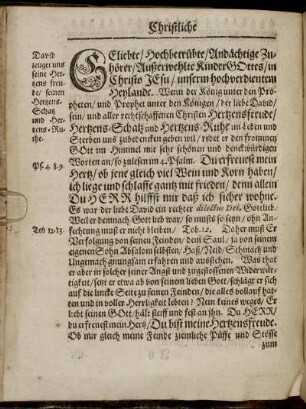 Christliche
David
zeiget uns
seine Her-
tzens freu-
de/ seinen
Hertzens-
Schatz
und Her-
tzens-Ru-
he.
Ps. 4. 8. 9.
Tob 12/13.
Geliebte/ Hochbetrübte/ Andächtige Zu-
hörer/ Außerwehlte Kinder GOttes/ in
Christo JEsu/ unserm hochverdienten
Heylande. Wenn der König unter den Pro-
pheten/ und Prophet unter den Königen/ der liebe David/
sein/ und aller rechtschaffenen Christen Hertzensfreude/
Hertzens-Schatz und Hertzens Ruhe im Leben und
Sterben uns zubedencken geben wil/ redet er den frommen
GOtt im Himmel mit sehr schönen und denckwürdigen
Worten an/ so zulesen im 4. Psalm. Du erfreuest mein
Hertz/ ob jene gleich viel Wein und Korn haben/
ich liege und schlaffe gantz mit frieden/ denn allein
Du HERR hilffst mir daß ich sicher wohne.
Es war der liebe David ein rechter dilectus Dei, Gottlieb.
Weil er demnach Gott lieb war/ so muste so seyn/ ohn An-
fechtung must er nicht bleiben/ Tob. 12. Daher must Er
Verfolgung von seinen Feinden/ dem Saul/ ja von seinem
eigenen Sohn Absalom selbsten/ Haß/ Neid/ Schmach und
Ungemach gnungsam erfahren und ausstehen. Was that
er aber in solcher seiner Angst und zugestossenen Widerwär-
tigkeit/ setzt er etwa ab von seinem lieben Gott/ schläget er sich
auf die lincke Seite zu seinen Feinden/ die alles vollauf hat-
ten und in voller Herrligkeit lebten? Nein keines weges/ Er
liebt seinen GOtt/ hält steiff und fest an ihn. Du HERR/
du erfreuest mein Hertz/ Du bist meine Hertzensfreude.
Ob nur gleich meine Feinde ziemliche Püffe und Stösse
zum